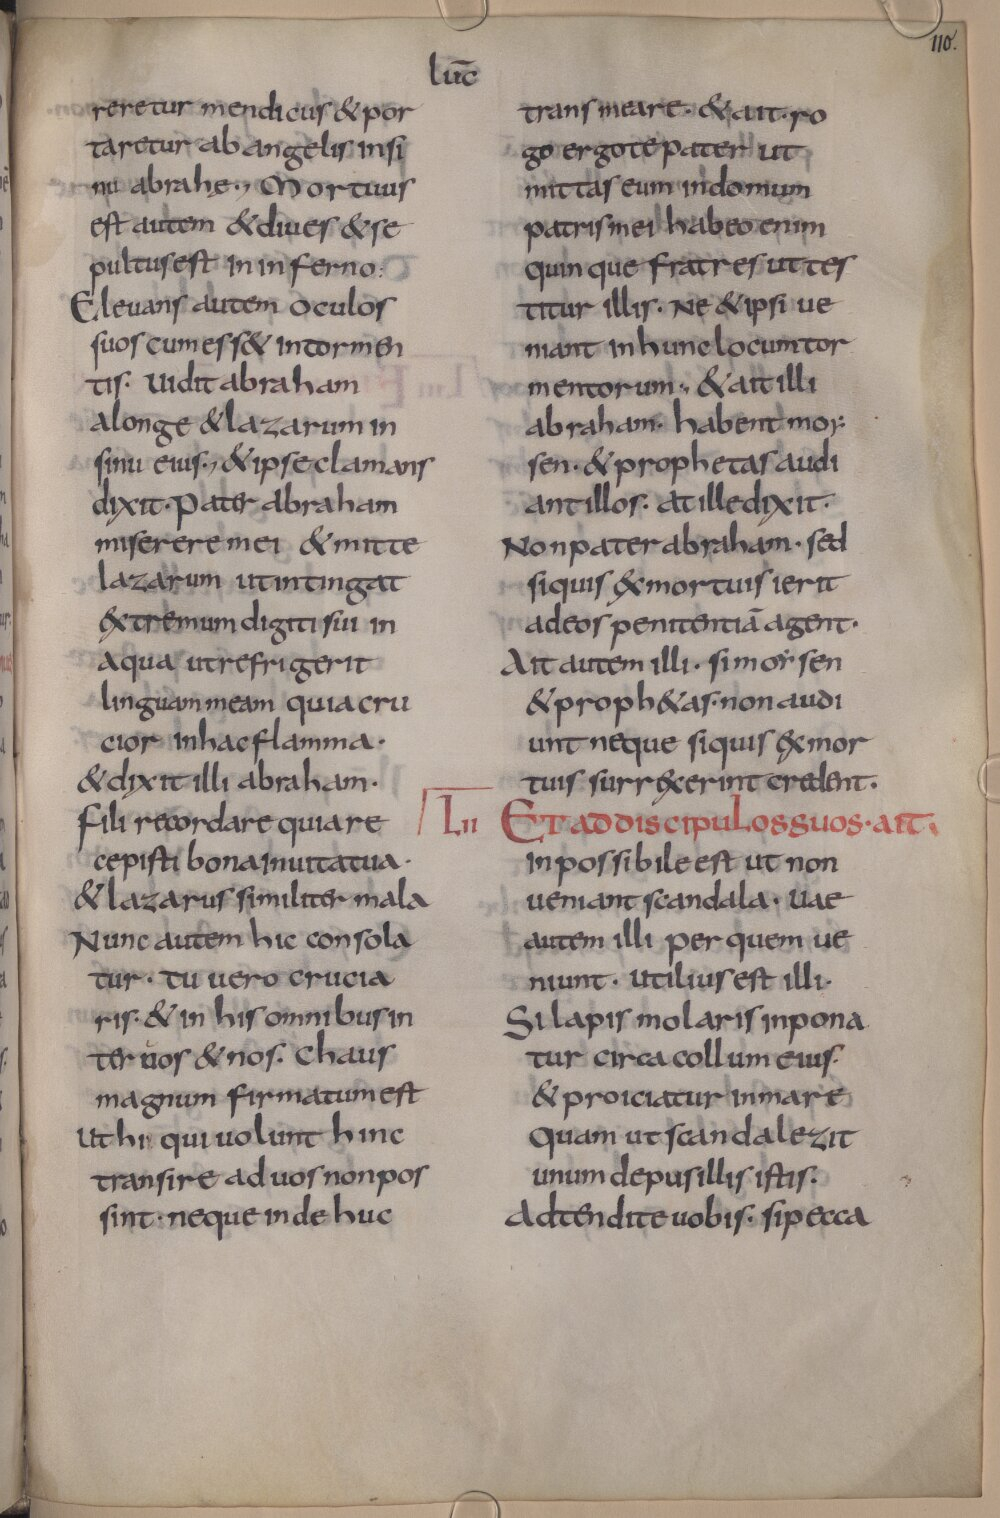 110.
luc̄
reretur mendicus & por
taretur ab angelis in si
nu abrahe., Mortuus
est autem & diues & se
pultus est in inferno:
Eleuans autem oculos
suos cum ess& in tormen
tis. Uidit abraham
a longe & lazarum in
sinu eius., & ipse clamans
dixit. Pater abraham
miserere mei & mitte
lazarum ut intingat
extremum digiti sui in
aqua ut refrigerit
linguam meam quia cru
cior in hac flamma.
& dixit illi abraham.
Fili recordare quia re
cepisti bona in uita tua.
& lazarus similiter mala
Nunc autem hic consola
tur. tu uero crucia
ris. & in his omnibus in
ter uos & nos. Chaus
magnum firmatum est
Ut hi qui uolunt hinc
transire ad uos non pos
sint. neque inde huc
trans meare. & ait. ro
go ergo te pater ut
mittas eum in domum
patris mei habeo enim
quinque fratres ut tes
titur illis. Ne & ipsi ue
niant in hunc locum tor
mentorum., & ait illi
abraham. habent moy
sen. & prophetas audi
ant illos. at ille dixit.
Non pater abraham. sed
si quis ex mortuis ierit
ad eos penitentiā agent.
Ait autem illi. si moysen
& proph&as. non audi
unt neque si quis ex mor
tuis surrexerint credent.
LII Et ad discipulos suos. ait.
inpossibile est ut non
ueniant scandala. Uae
autem illi per quem ue
niunt. Utilius est illi.
Si lapis molaris inpona
tur circa collum eius.
& proiciatur in mare
Quam ut scandalezit
unum de pusillis istis.
Adtendite uobis. si pecca